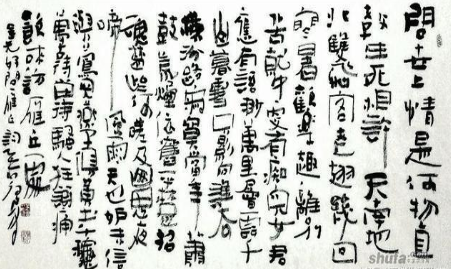 問世上情是何物直
教生死相許天南地
北雙飛客老翅幾回
寒暑歡樂趣離別
苦就中更有痴兒女君
應有語渺萬里層雲千
山暮雪只影向誰去
橫汾路寂寞當年蕭
鼓荒煙依舊平楚招
魂楚些何嗟及山鬼夜
啼風雨天也妒未信
與鶯兒燕子俱黃土千龝
萬古待騷人狂歌痛
飲來訪雁丘處
元好問雁丘詞
shufa